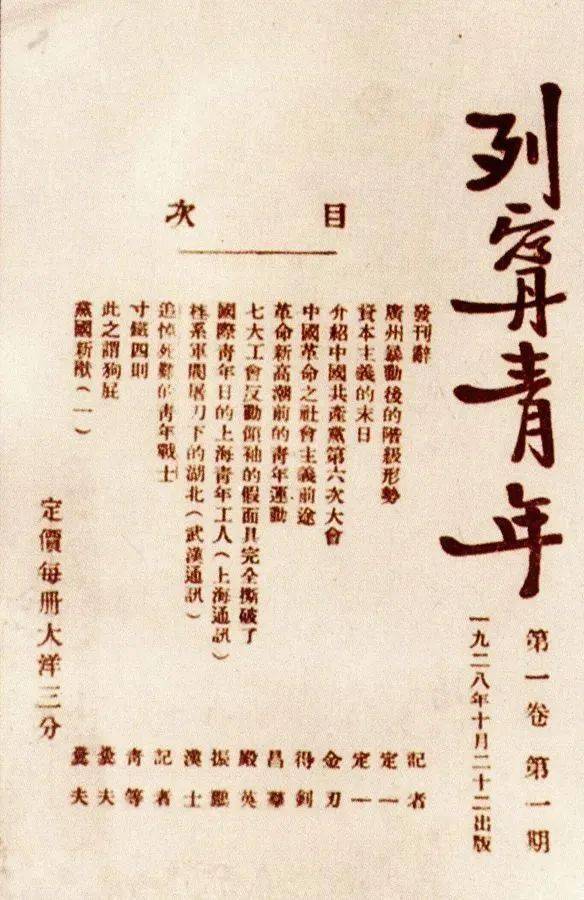 列寧青年
第一卷 第一期
一九二八年十月二十二出版
目次
發刊辭 記者
廣州暴動後的階級形勢 定一
資本主義的末日 定一
介紹中國共產黨第六次大會 金刃
中國革命之社會主義前途 得釗
革命新高潮前的青年運動 昌羣
七大工會反動領袖的假面具完全撕破了 殿英
國際青年日的上海青年工人(上海通訊) 振鵬
桂系軍閥屠刀下的湖北(武漢通訊) 漢士
追悼死難的青年戰士 記者
寸鐵四則 青等
此之謂狗屁 糞夫
黨國新猷(一) 糞夫
定價每册大洋三分